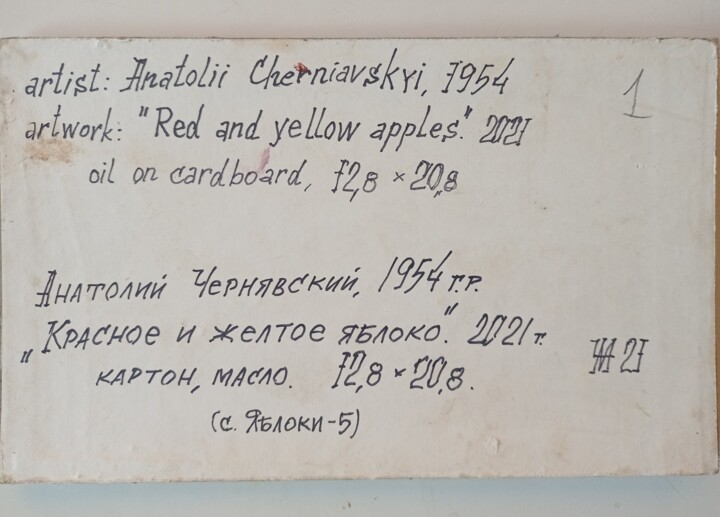 artist: Anatolii Cherniavskyi, 1954
artwork: "Red and yellow apples". 2021
1
oil on cardboard, 12,8 × 20,8
Анатолий Чернявский, 1954 г.р.
"Красное и желтое яблоко". 2021 г.
картон, масло. 12,8 × 20,8.
(с. Яблоки-5)